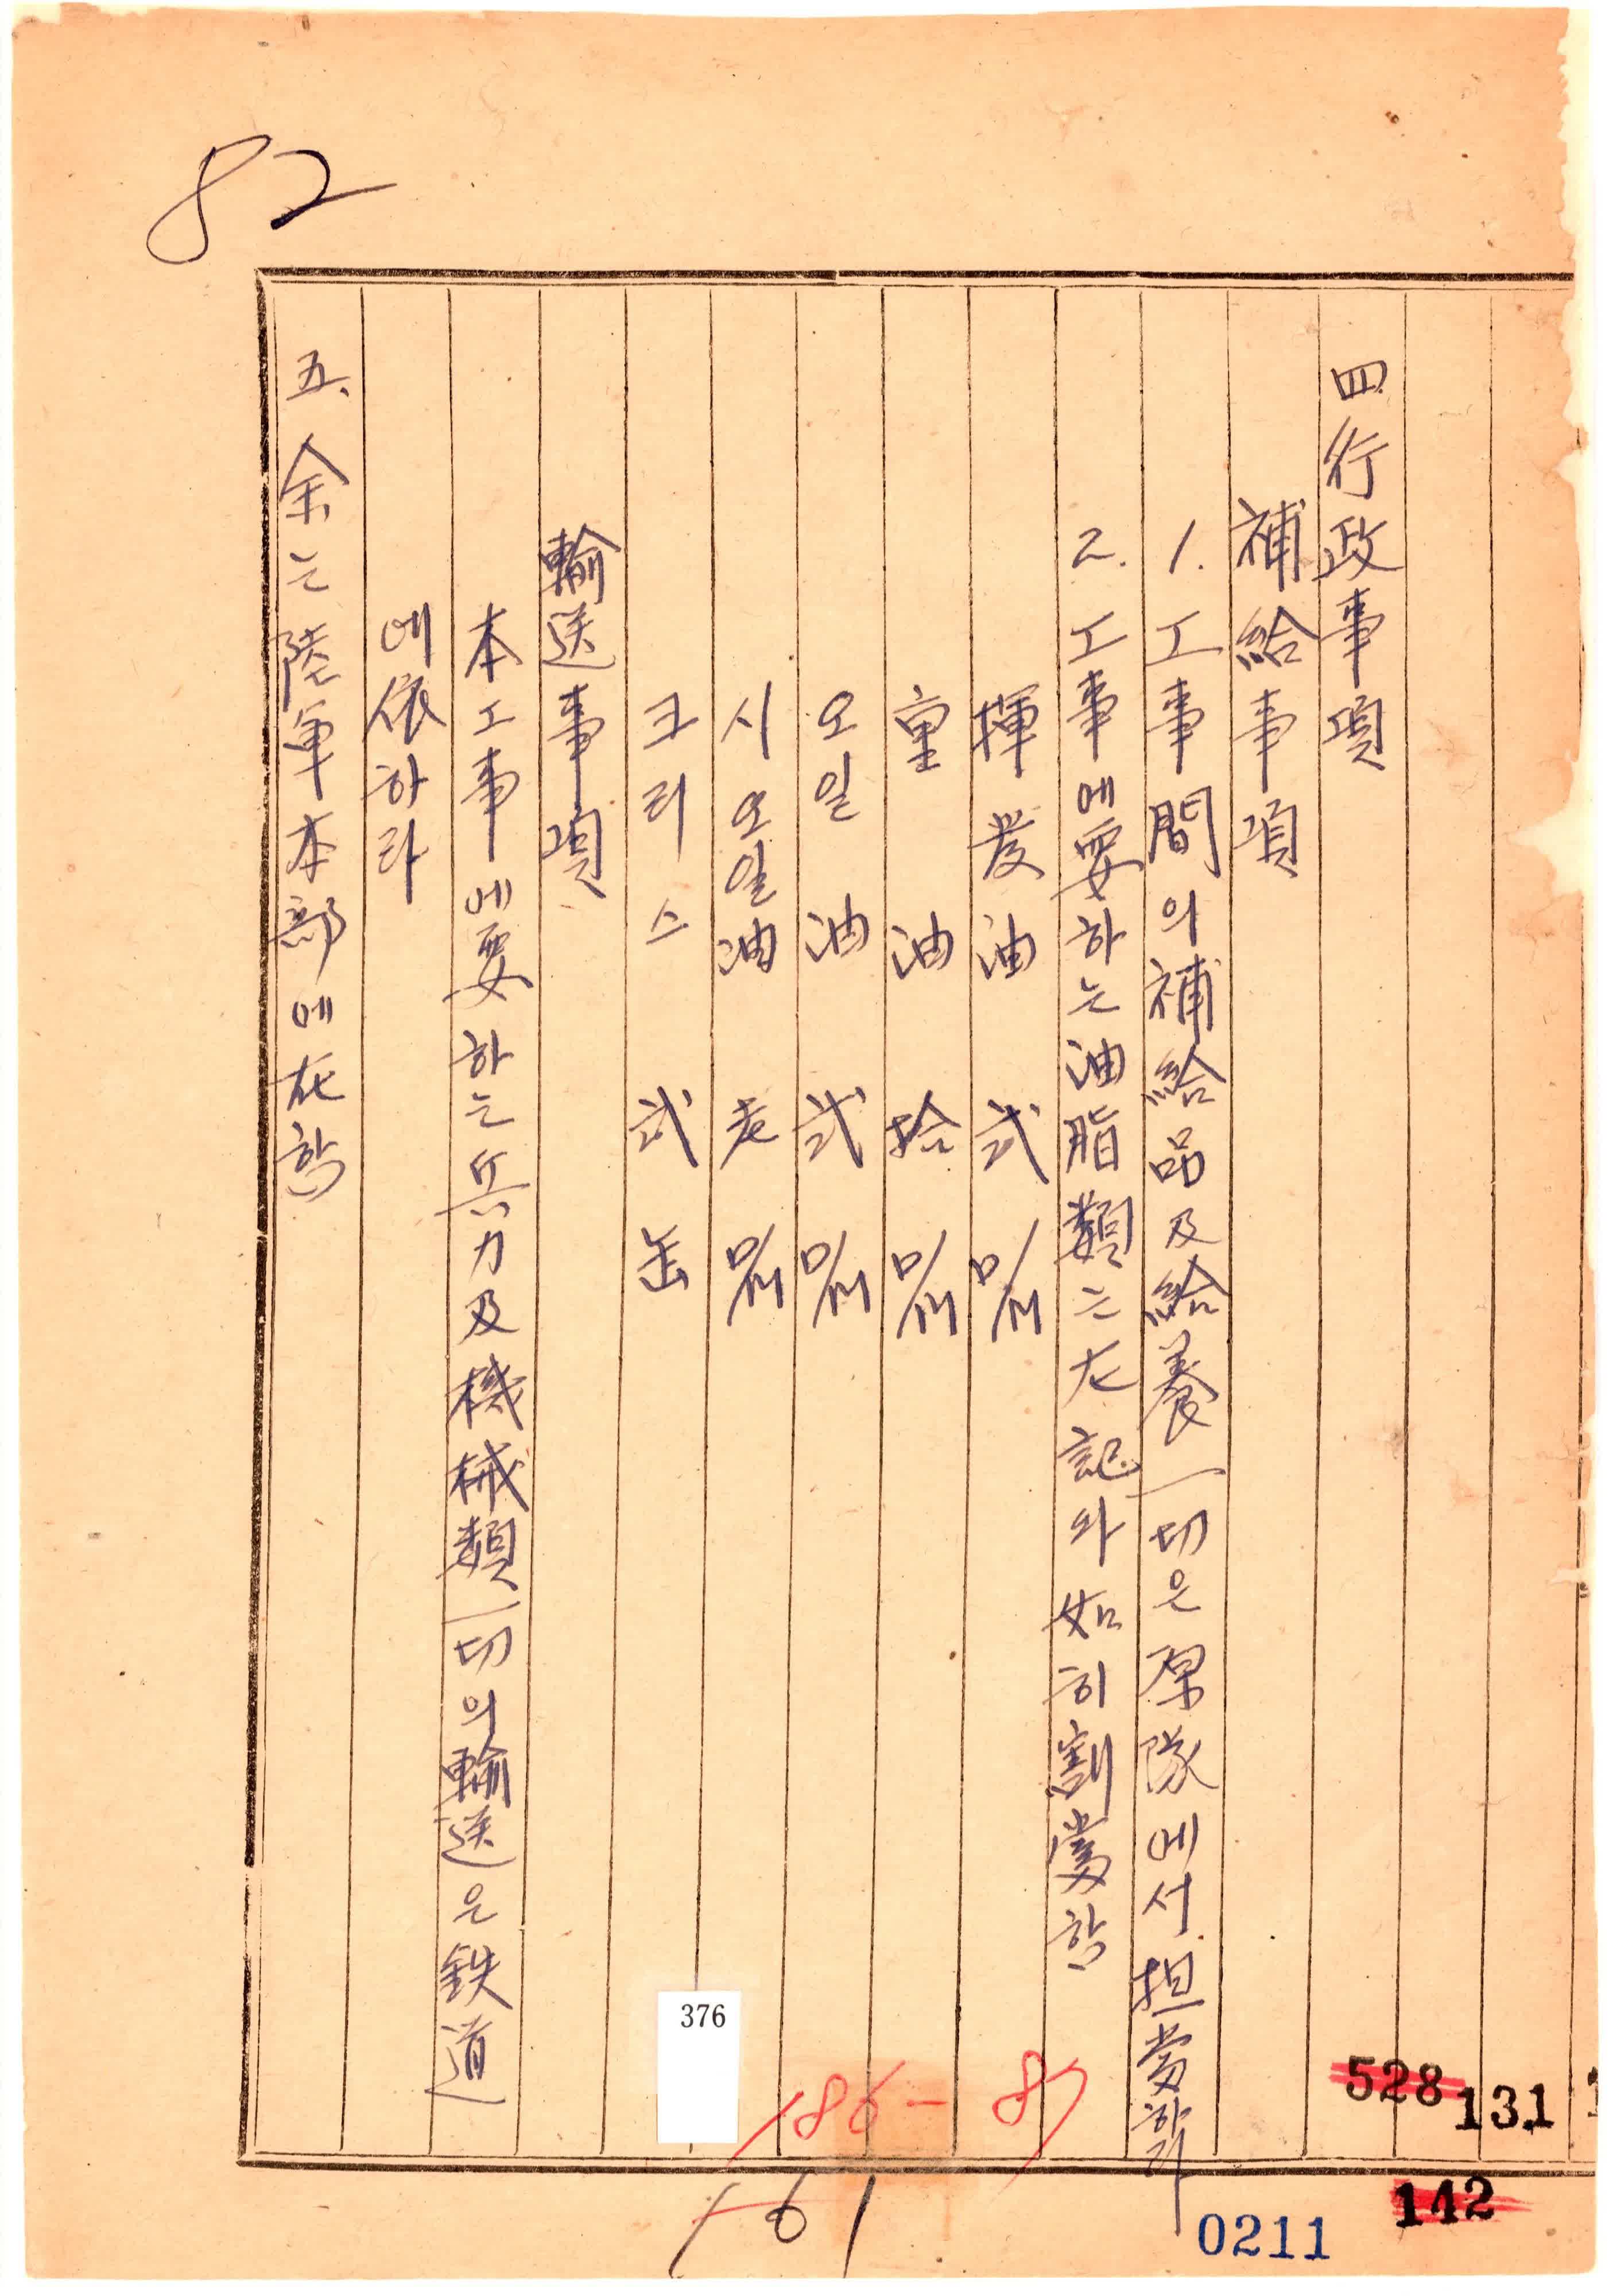 82
四 行政事項
補給事項
1. 工事間의 補給品 及 給養 一切은 原隊에서 担當하라
2. 工事에 要하는 油脂類는 左記와 如히 割當함
揮發油 弐
重油 拾
오일油 弐
시오일油 壱
크리스 弐 缶
輸送事項
本工事에 要하는 兵力 及 機械類 一切의 輸送은 鉄道
에 依하라
五、余는 陸軍本部에 在함
376
186-87
161
528
131
142
0211